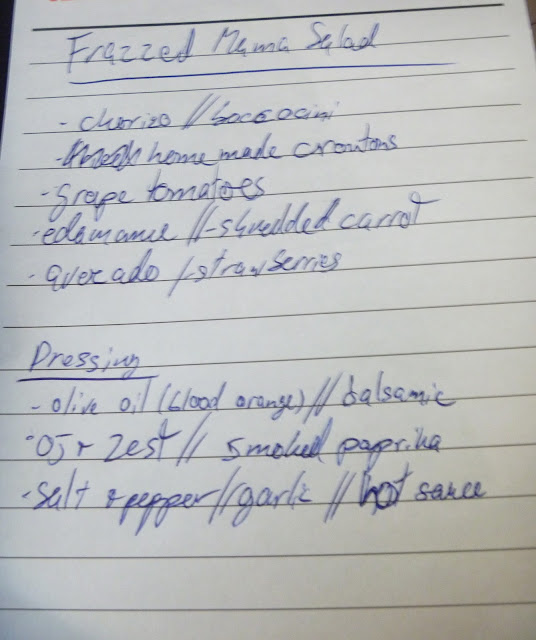 Frazzed Mama Salad
- chorizo // boccocini
- homemade croutons
- grape tomatoes
- edamame // - shredded carrot
- avocado / - strawberries
Dressing
- olive oil (blood orange) // balsamic
- OJ + zest // smoked paprika
- salt + pepper // garlic // hot sauce